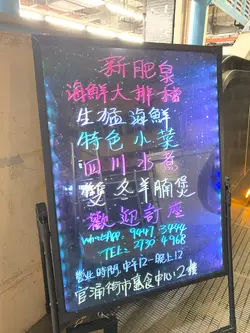 新肥泉
海鮮大排檔
生猛海鮮
特色小菜
四川水煮
雙冬羊腩煲
歡迎訂座
WhatsApp: 9447 3444
TEL: 2730 4968
營业時間,中午12-晚上12
官涌街市熟食中心2樓